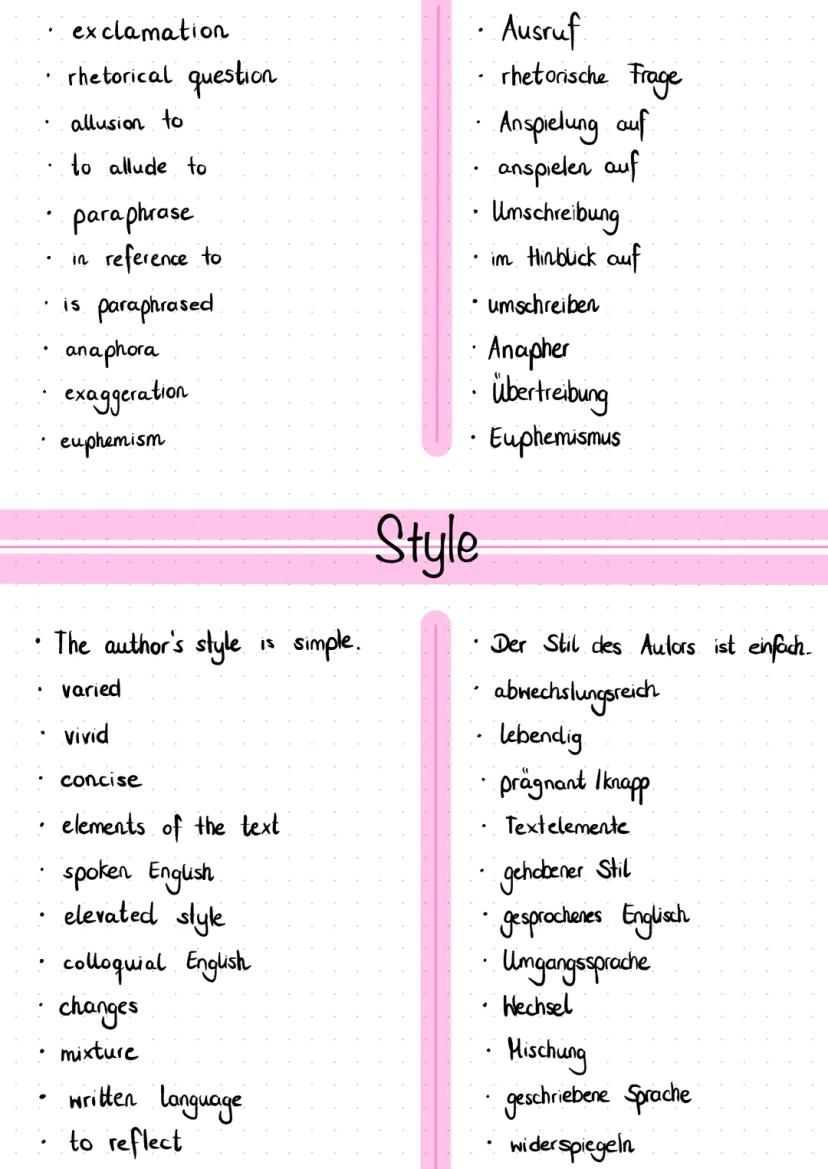 · exclamation
· rhetorical question
· allusion to
· to allude to
· paraphrase
· in reference to
· is paraphrased
· anaphora
· exaggeration
· euphemism
· Ausruf
· rhetorische Frage
· Anspielung auf
· anspielen auf
· Umschreibung
· im Hinblick auf
· umschreiben
· Anapher
· Übertreibung
· Euphemismus
Style
· The author's style is simple.
· varied
· vivid
· concise
· elements of the text
· spoken English
· elevated style
· colloquial English
· changes
· mixture
· written language
· to reflect
· Der Stil des Autors ist einfach.
· abwechslungsreich
· lebendig
· prägnant /knapp
· Textelemente
· gehobener Stil
· gesprochenes Englisch
· Umgangssprache
· Wechsel
· Mischung
· geschriebene Sprache
· widerspiegeln